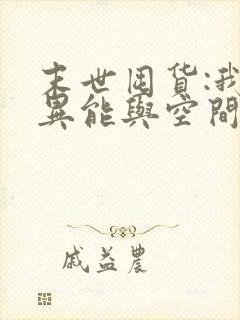 末世囤货:我
異能與空間
戚益農